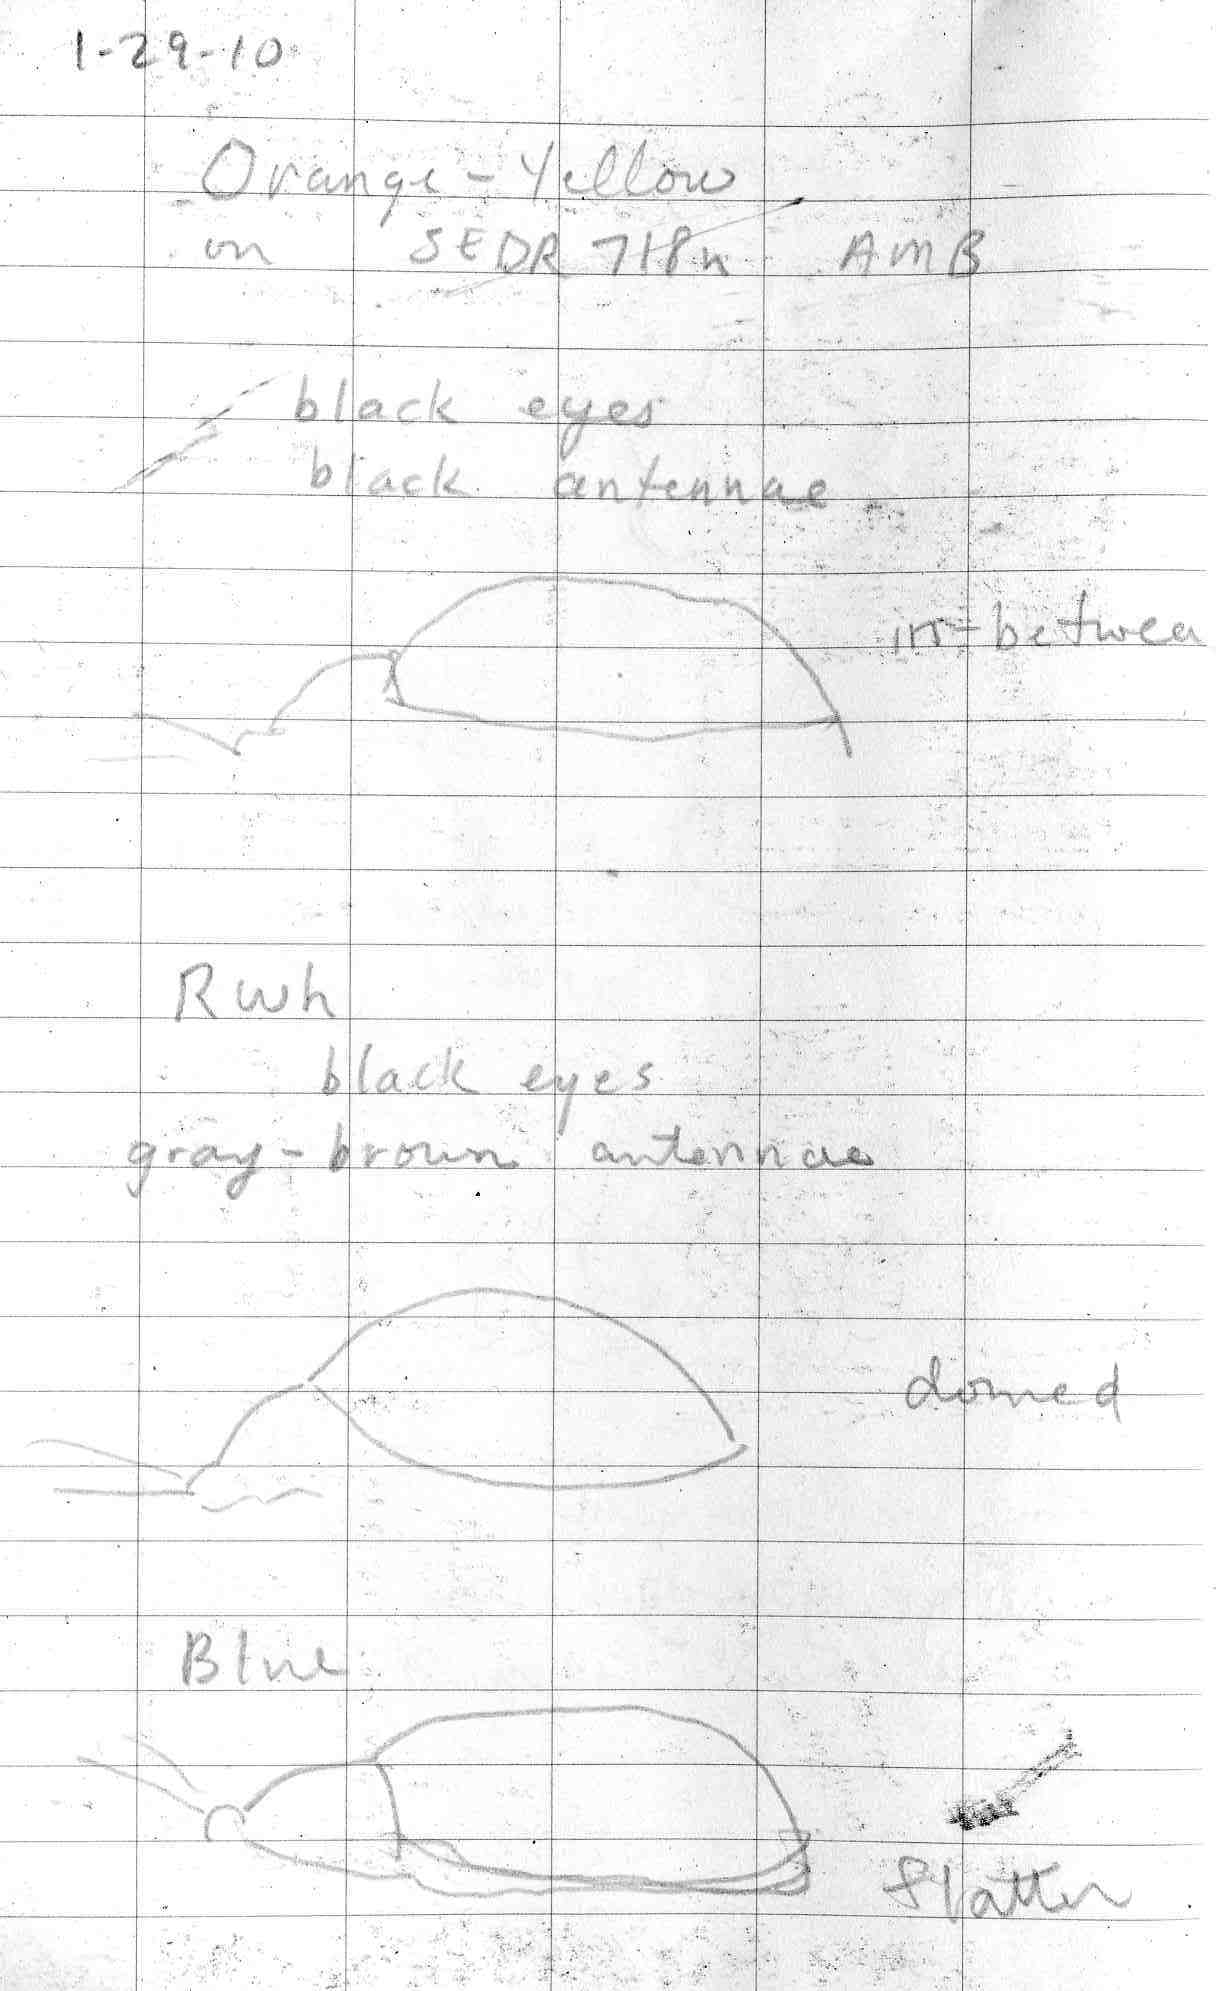 1-29-10
Orange-Yellow
on SEDR 718n AMB
black eyes
black antennae
in-betwee
Rwh
black eyes
gray-brown antennae
domed
Blue
flatter